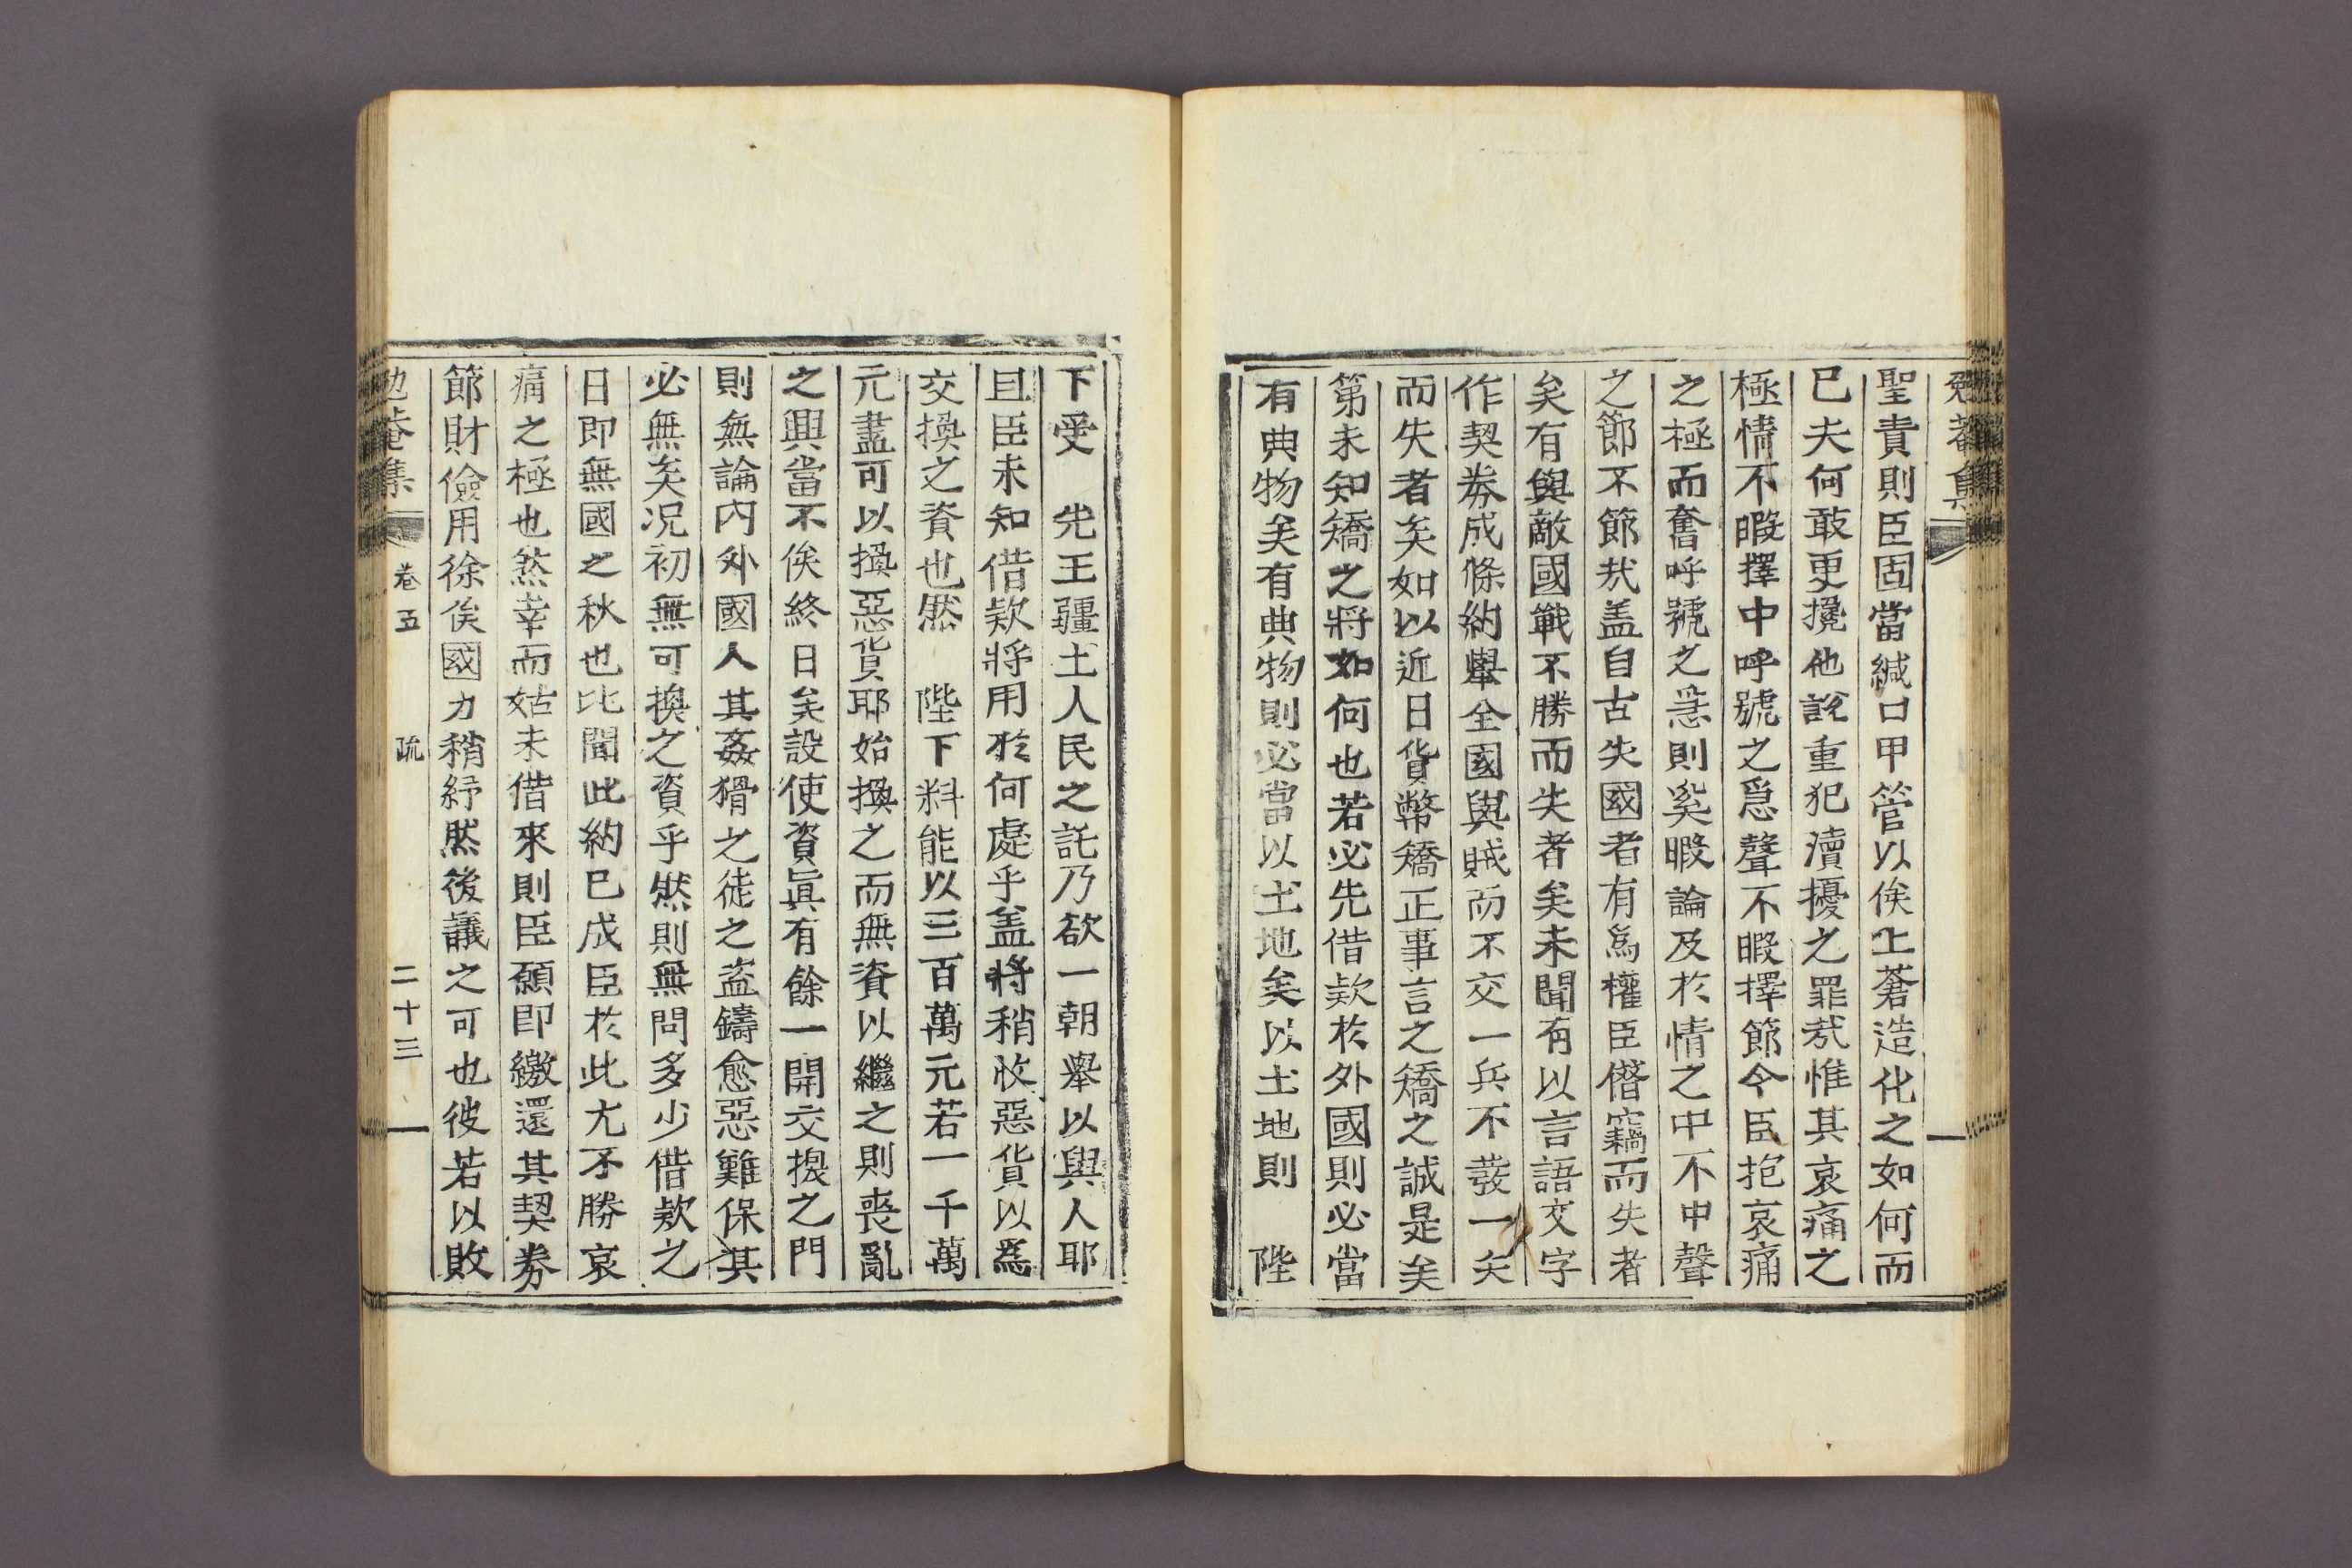 勉菴集
聖責則臣固當緘口甲管以俟上蒼造化之如何而
已夫何敢更攙他說重犯瀆擾之罪㦲惟其哀痛之
極情不暇擇中呼號之急聲不暇擇節今臣抱哀痛
之極而奮呼號之急則奚暇論及於情之中不中聲
之節不節㦲盖自古失國者有爲權臣僭竊而失者
矣有與敵國戰不勝而失者矣未聞有以言語文字
作契券成條約舉全國與賊而不交一兵不發一矢
而失者矣如以近日貨幣矯正事言之矯之誠是矣
第未知矯之將如何也若必先借欵於外國則必當
有典物矣有典物則必當以土地矣以土地則　陛
下受　先王疆土人民之託乃欲一朝舉以與人耶
且臣未知借欵將用於何處乎盖將稍收惡貨以爲
交換之資也然　陛下料能以三百萬元若一千萬
元盡可以換惡貨耶始換之而無資以繼之則喪亂
之興當不俟終日矣設使資眞有餘一開交換之門
則無論內外國人其姦猾之徒之盜鑄愈惡難保其
必無矣况初無可換之資乎然則無問多少借欵之
日即無國之秋也比聞此約已成臣於此尤不勝哀
痛之極也然幸而姑未借來則臣願即繳還其契券
節財儉用徐俟國力稍紓然後議之可也彼若以敗
勉菴集　卷五　疏　二十三